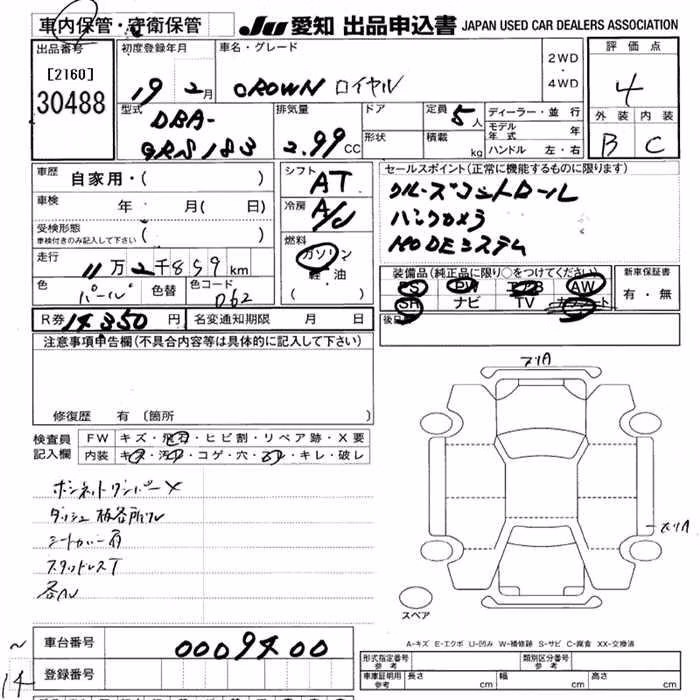 車内保管・守衛保管
JU 愛知 出品申込書 JAPAN USED CAR DEALERS ASSOCIATION
出品番号
[2160]
30488
初度登録年月
19 2月
車名・グレード
CROWN ロイヤル
2WD
・
4WD
評価点
4
外装 内装
B C
型式
DBA-
GRS183
排気量
2.99CC
ドア
形状
定員 5人
積載 kg
ディーラー・並行
モデル年式 年
ハンドル 左・右
車歴 自家用・( )
車検 年 月( 日)
受検形態
車検付きのみ記入して下さい ( )
走行 11万2千859km
色 パール 色替 色コード 062
R券 14350円 名変通知期限 月 日
シフト
AT
冷房
A/C
燃料
ガソリン
軽・油
( )
セールスポイント(正常に機能するものに限ります)
クルーズコントロール
バックカメラ
HDDEシステム
装備品(純正品に限り○をつけてください)
PS PW エアB AW
SR ナビ TV カワシート
新車保証書
有・無
注意事項申告欄(不具合内容等は具体的に記入して下さい)
修復歴 有〔箇所 〕
検査員記入欄
FW キズ・飛石・ヒビ割・リペア跡・X要
内装 キズ・汚レ・コゲ・穴・スレ・キレ・破レ
ボンネットダンパーX
ダッシュ板各所ワレ
シートカバー有
スタッドレスT
スリA
スリA
スペア
A-キズ E-エクボ U-凹み W-補修跡 S-サビ C-腐食 XX-交換済
車台番号 0009400
登録番号
~
14
形式指定番号 参考
類別区分番号 参考
車庫証明用 参考 長さ cm 幅 cm 高さ cm